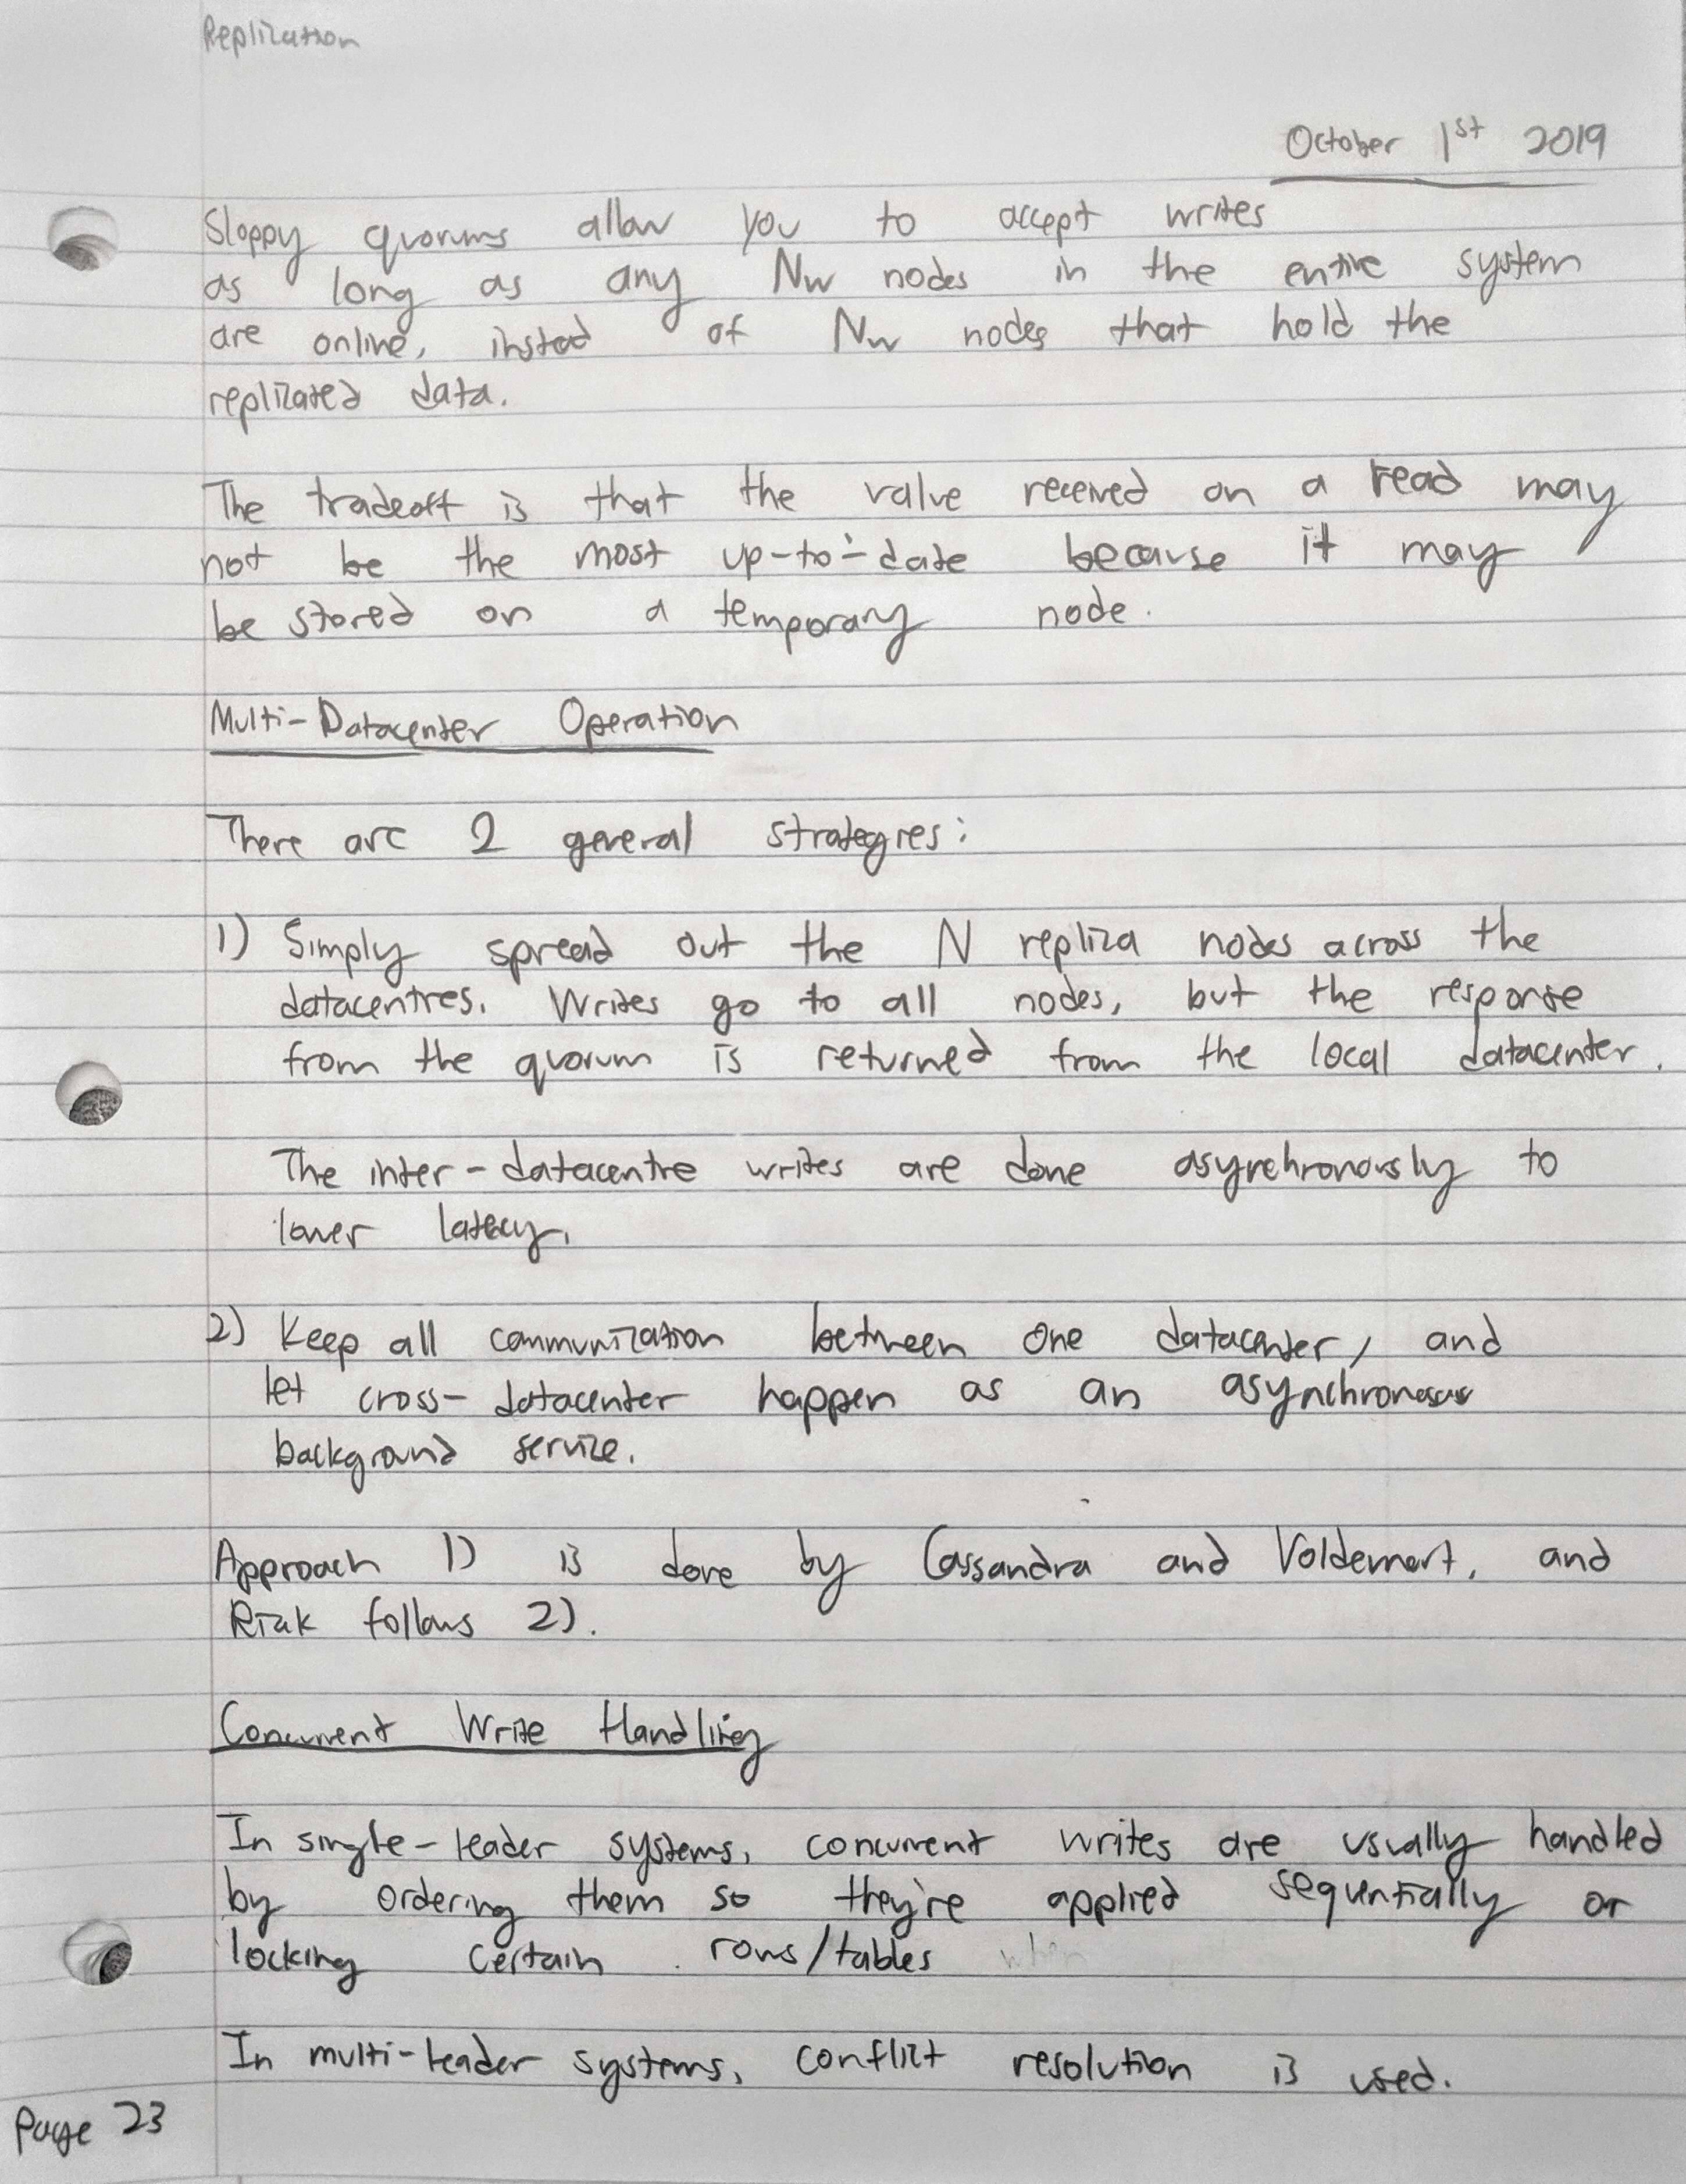 Replication
October 1st 2019
Sloppy quorums allow you to accept writes
as long as any Nw nodes in the entire system
are online, instead of Nw nodes that hold the
replicated data.
The tradeoff is that the value received on a read may
not be the most up-to-date because it may
be stored on a temporary node.
Multi-Datacenter Operation
There are 2 general strategies:
1) Simply spread out the N replica nodes across the
datacentres. Writes go to all nodes, but the response
from the quorum is returned from the local datacenter.
The inter-datacentre writes are done asynchronously to
lower latency.
2) Keep all communication between one datacenter, and
let cross-datacenter happen as an asynchronous
background service.
Approach 1) is done by Cassandra and Voldemort, and
Riak follows 2).
Concurrent Write Handling
In single-leader systems, concurrent writes are usually handled
by ordering them so they're applied sequentially or
locking certain rows/tables when
In multi-leader systems, conflict resolution is used.
Page 23